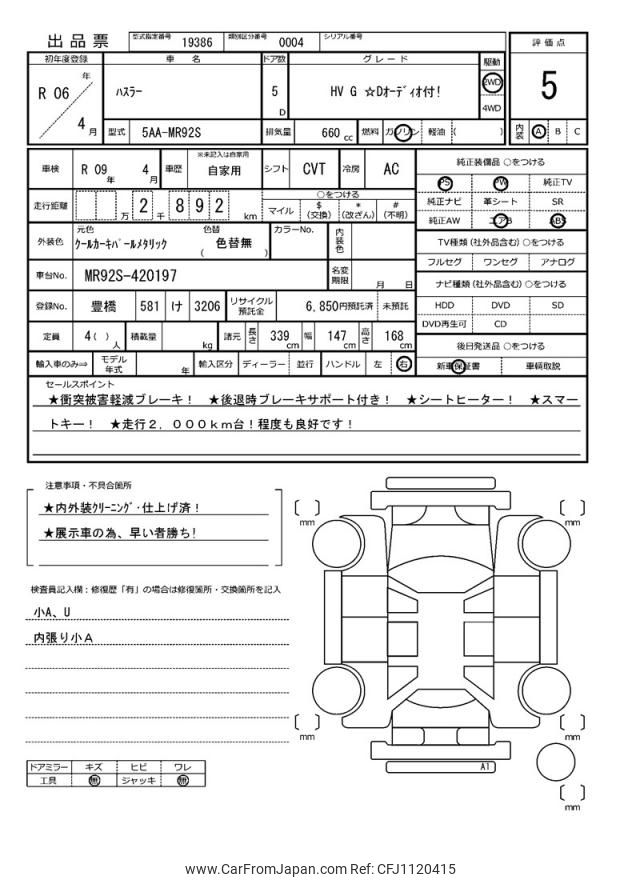 出品票 型式指定番号 19386 類別区分番号 0004 シリアル番号
評価点
5
内装 A B C
初年度登録 車名 ドア数 グレード 駆動
R 06 年 4 月 ハスラー 5 D HV G ☆Dオーディオ付! 2WD
4WD
型式 5AA-MR92S 排気量 660 cc 燃料 ガソリン 軽油 ( )
車検 R 09 年 4 月 車歴 ※未記入は自家用 自家用 シフト CVT 冷房 AC
走行距離 万 2 千 8 9 2 km ○をつける
マイル $ (交換) * (改ざん) # (不明)
外装色 元色 クールカーキパールメタリック 色替 ( 色替無 ) カラーNo. 内装色
車台No. MR92S-420197 名変期限 月 日
登録No. 豊橋 581 け 3206 リサイクル預託金 6,850円預託済 未預託
定員 4( ) 人 積載量 kg 諸元 長さ 339 cm 幅 147 cm 高さ 168 cm
輸入車のみ⇒ モデル年式 年 輸入区分 ディーラー 並行 ハンドル 左 右
純正装備品 ○をつける
PS PW 純正TV
純正ナビ 革シート SR
純正AW エアB ABS
TV種類(社外品含む)○をつける
フルセグ ワンセグ アナログ
ナビ種類(社外品含む)○をつける
HDD DVD SD
DVD再生可 CD
後日発送品 ○をつける
新車保証書 車輌取説
セールスポイント
★衝突被害軽減ブレーキ! ★後退時ブレーキサポート付き! ★シートヒーター! ★スマー
トキー! ★走行2,000km台!程度も良好です!
注意事項・不具合箇所
★内外装クリーニング・仕上げ済!
★展示車の為、早い者勝ち!
検査員記入欄:修復歴「有」の場合は修復箇所・交換箇所を記入
小A、U
内張り小A
mm
mm
mm
mm
mm
A1
ドアミラー キズ ヒビ ワレ
工具 無 ジャッキ 無
www.CarFromJapan.com Ref: CFJ1120415